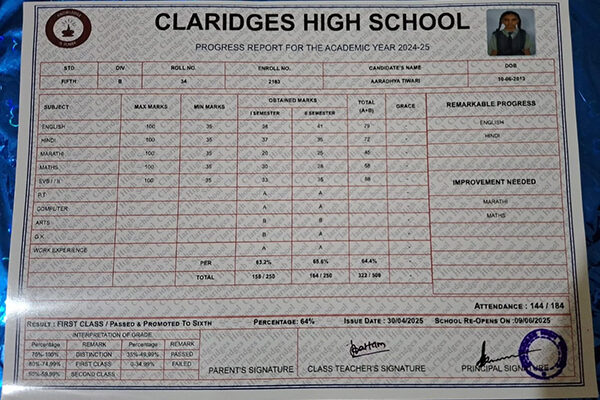 CLARIDGES HIGH SCHOOL
PROGRESS REPORT FOR THE ACADEMIC YEAR 2024-25
STD DIV ROLL NO. ENROLL NO. CANDIDATE'S NAME DOB
FIFTH B 34 2183 AARADHYA TIWARI 10-06-2013
SUBJECT MAX MARKS MIN MARKS OBTAINED MARKS TOTAL (A+B) GRACE REMARKABLE PROGRESS
I SEMESTER II SEMESTER
ENGLISH 100 35 38 41 79 - ENGLISH
HINDI 100 35 37 35 72 - HINDI
MARATHI 100 35 20 25 45 -
MATHS 100 35 30 28 58 -
EVS I / II 100 35 33 35 68 - IMPROVEMENT NEEDED
P.T A A - MARATHI
COMPUTER A A - MATHS
ARTS B B -
G.K B A -
WORK EXPERIENCE A A -
PER 63.2% 65.6% 64.4% -
TOTAL 158 / 250 164 / 250 322 / 500 -
ATTENDANCE : 144 / 184
RESULT : FIRST CLASS / PASSED & PROMOTED TO SIXTH PERCENTAGE: 64% ISSUE DATE : 30/04/2025 SCHOOL RE-OPENS ON :09/06/2025
INTERPRETATION OF GRADE
Percentage REMARK Percentage REMARK
75%-100% DISTINCTION 35%-49.99% PASSED
60%-74.99% FIRST CLASS 0-34.99% FAILED
50%-59.99% SECOND CLASS
PARENT'S SIGNATURE CLASS TEACHER'S SIGNATURE PRINCIPAL SIGNATURE